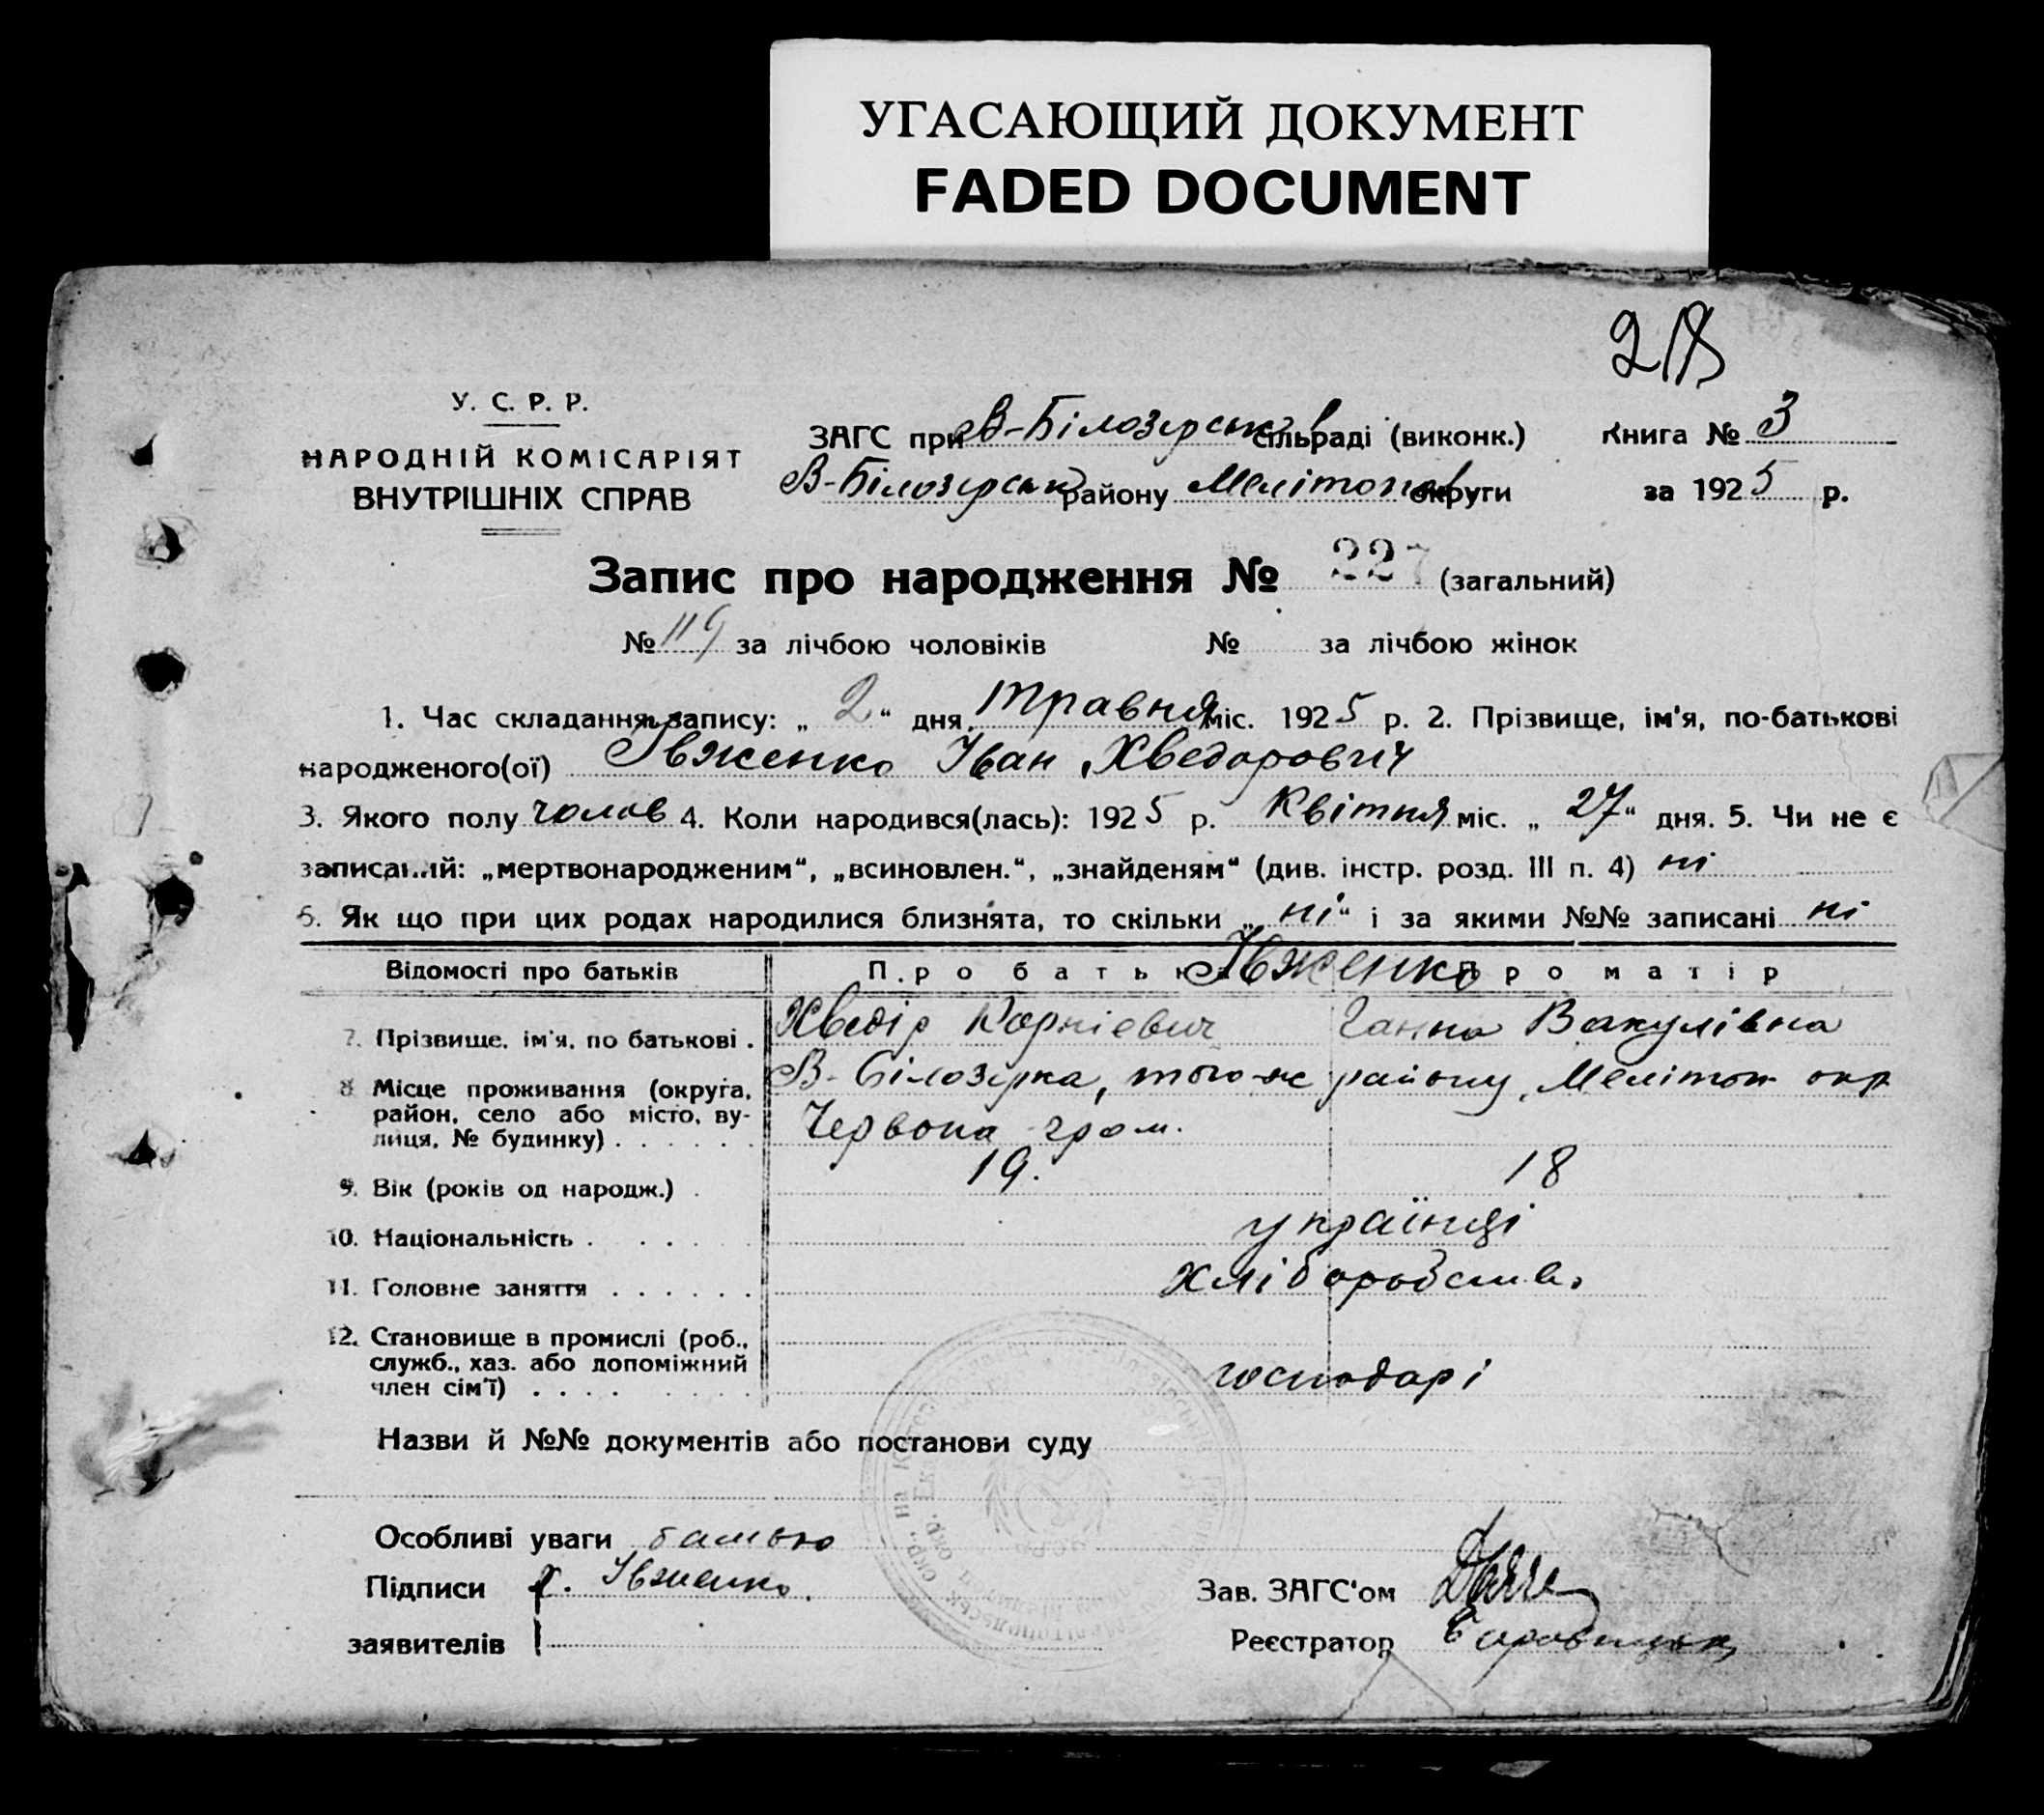 УГАСАЮЩИЙ ДОКУМЕНТ
FADED DOCUMENT
218
У. С. Р. Р.
НАРОДНІЙ КОМІСАРІЯТ
ВНУТРІШНІХ СПРАВ
ЗАГС при В-Білозерськ сільраді (виконк.) Книга № 3
В-Білозерськ району Мелітопол округи за 1925 р.
Запис про народження № 227 (загальний)
№ 119 за лічбою чоловіків № за лічбою жінок
1. Час складання запису: „ 2 “ дня Травня міс. 1925 р. 2. Прізвище, ім'я, по-батькові
народженого(ої) Івженко Іван Хведорович
3. Якого полу чолов 4. Коли народився(лась): 1925 р. Квітня міс. „ 27 “ дня. 5. Чи не є
записаний: „мертвонародженим“, „всиновлен.“, „знайденям“ (див. інстр. розд. III п. 4) ні
6. Як що при цих родах народилися близнята, то скільки „ ні “ і за якими №№ записані ні
Відомості про батьків Про батька Про матір
Івженко
7. Прізвище, ім'я, по батькові . Хведір Корнієвич Ганна Вакулівна
8. Місце проживання (округа, В-Білозерка, того-ж району, Мелітоп окр
район, село або місто, ву-
лиця, № будинку) . . . . . . Червона гром.
9. Вік (років од народж.) . 19. 18
10. Національність . . . . . українці
11. Головне заняття . . . . . . хліборобств.
12. Становище в промислі (роб.,
служб., хаз. або допоміжний
член сім'ї) . . . . . . . . господарі
Назви й №№ документів або постанови суду
Особливі уваги батько
Підписи Х. Івженко. Зав. ЗАГС'ом
заявителів Реєстратор